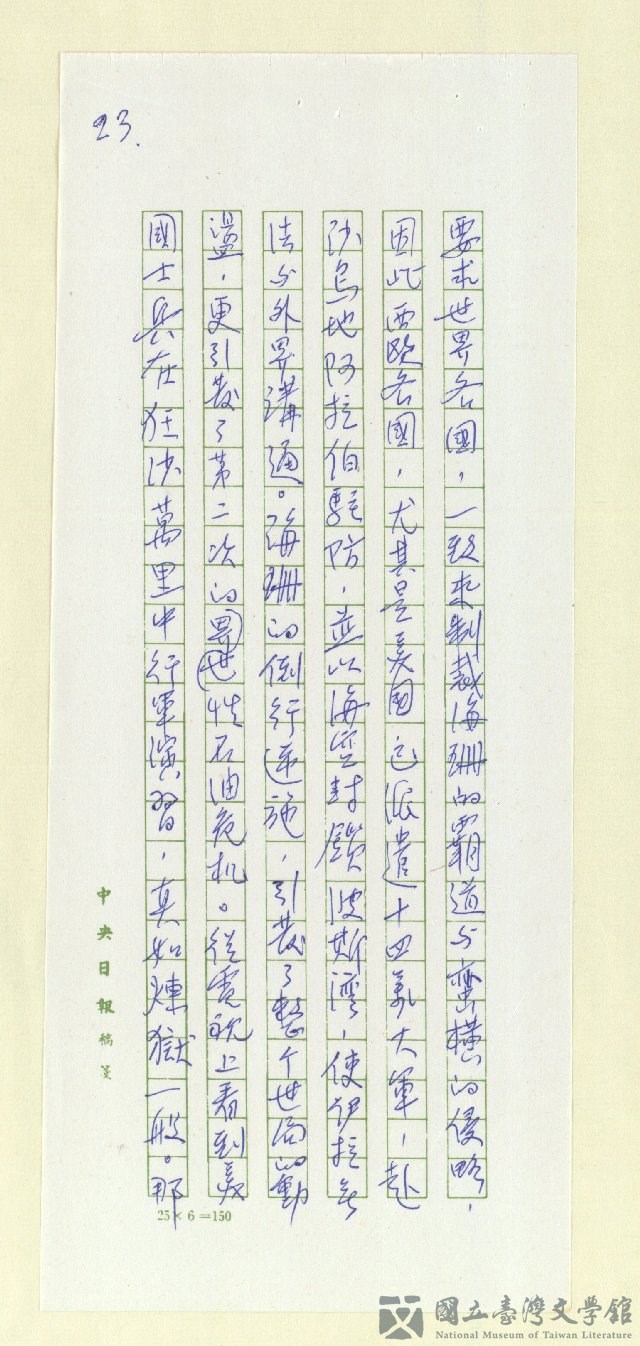 23.
要求世界各国,一致来制裁海珊的霸道与蛮横的侵略,
因此西欧各國,尤其是美國已派遣十四万大軍,赴
沙烏地阿拉伯駐防,並以海空封鎖波斯湾,使伊拉克無
法与外界溝通。海珊的倒行逆施,引發了整个世局的動
盪,更引發了第二次的界世性石油危机。從電視上看到美
國士兵在狂沙萬里中行軍演習,真如煉獄一般。那
中央日報稿箋
25×6=150
國立臺灣文學館
National Museum of Taiwan Literature